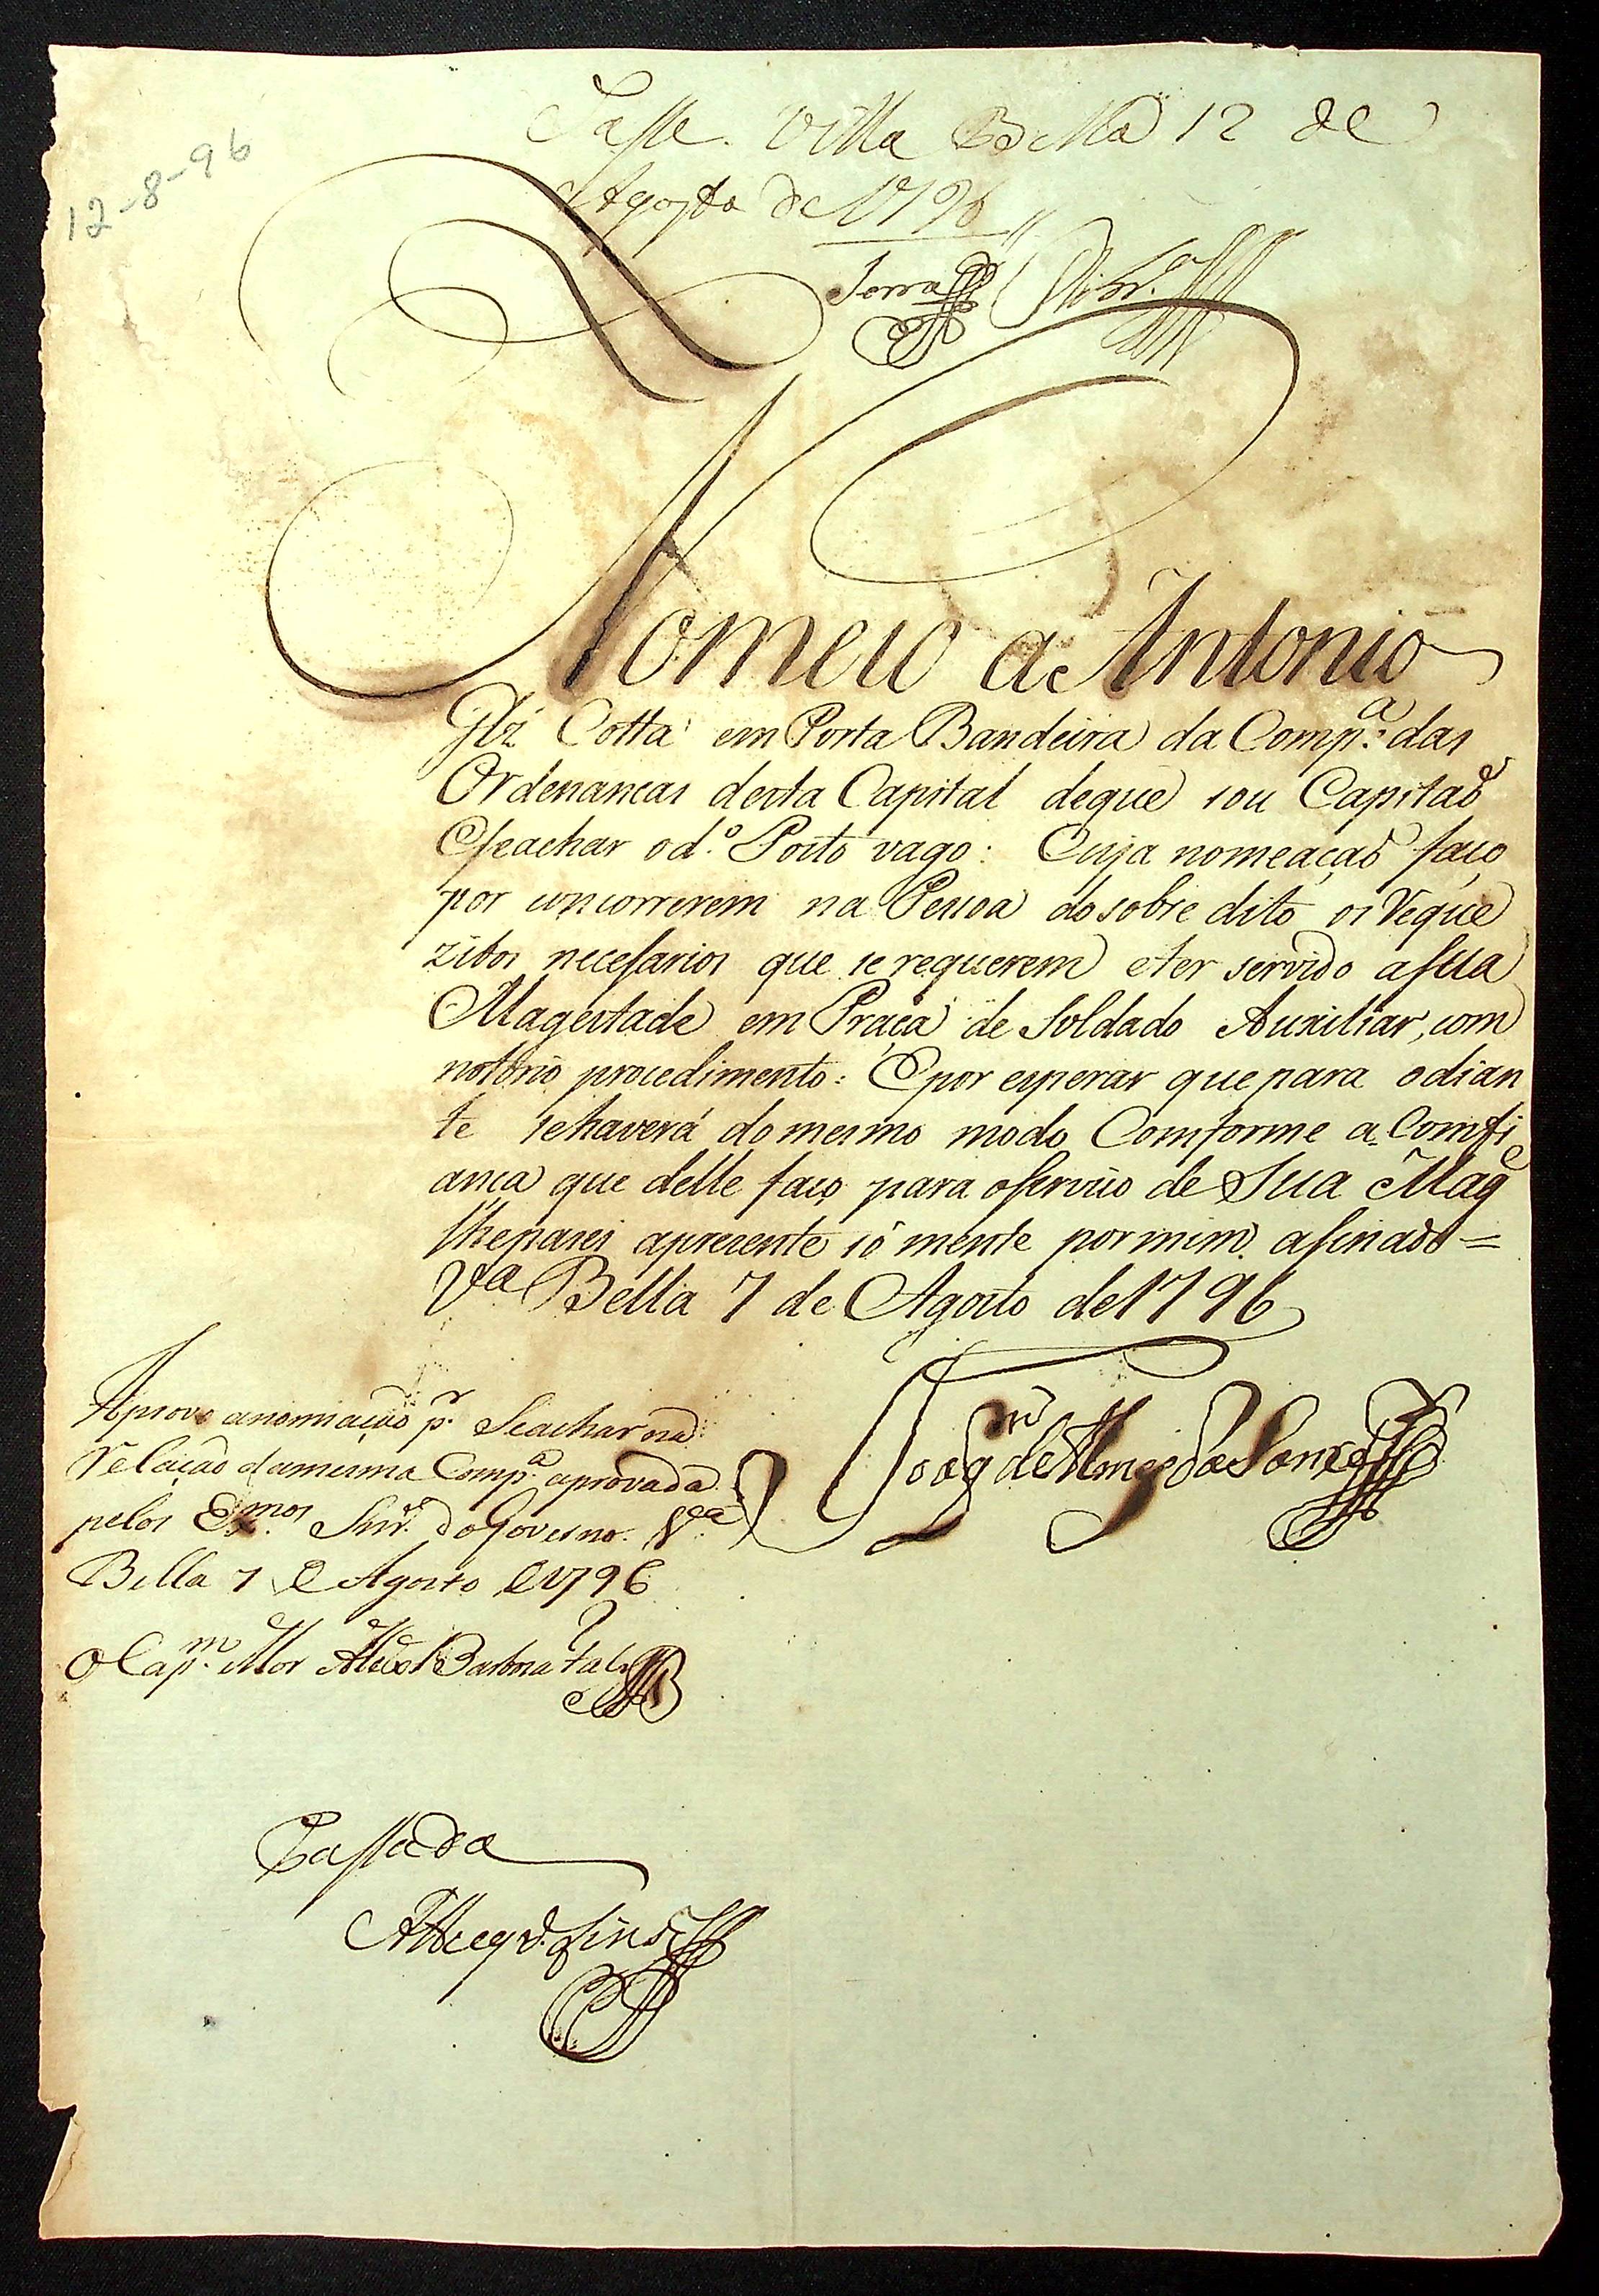 12-8-96
Passe. Villa Bella 12 de
Agosto de 1796
Serra
Nomeio a Antonio
Glz Cotta em Porta Bandeira da Comp.ª das
Ordenancas desta Capital deque sou Capitaõ
Eseachar od.º Posto vago: Cuja nomeaçaõ faço
por concorrerem na Pessoa do sobre dito os Reque
zitos necesarios que se requerem eter servido asua
Magestade em Praça de Soldado Auxiliar, com
notorio procedimento: E por esperar que para odian
te sehaverá do mesmo modo Comforme a Comfi
anca que delle faço para oserviço de Sua Mag.e
lhepasei aprezente só mente por mim asinado=
V.a Bella 7 de Agosto de 1796
Joaq.m de Almeida
Aprovo anomiaçaõ p.r Seachar na
Relaçaõ damesma Comp.ª aprovada
pelos Ex.mos Snr.es do Governo. V.a
Bella 7 de Agosto de 1796
O Cap.m Mor
Passada